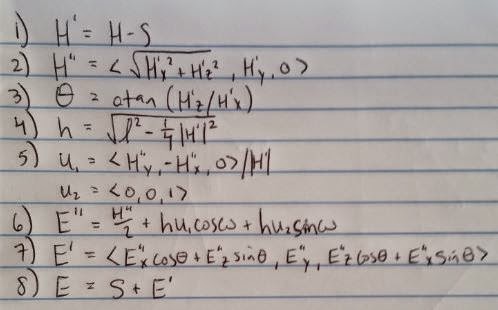 1) H' = H - S
2) H" = < √(H'x² + H'z²), H'y, 0 >
3) θ = atan (H'z/H'x)
4) h = √(l² - ¼|H'|²)
5) u₁ = <H"y, -H"x, 0>/|H'|
u₂ = <0, 0, 1>
6) E" = H"/2 + hu₁cosω + hu₂sinω
7) E' = <E"x cosθ + E"z sinθ, E"y, E"z cosθ + E"x sinθ>
8) E = S + E'